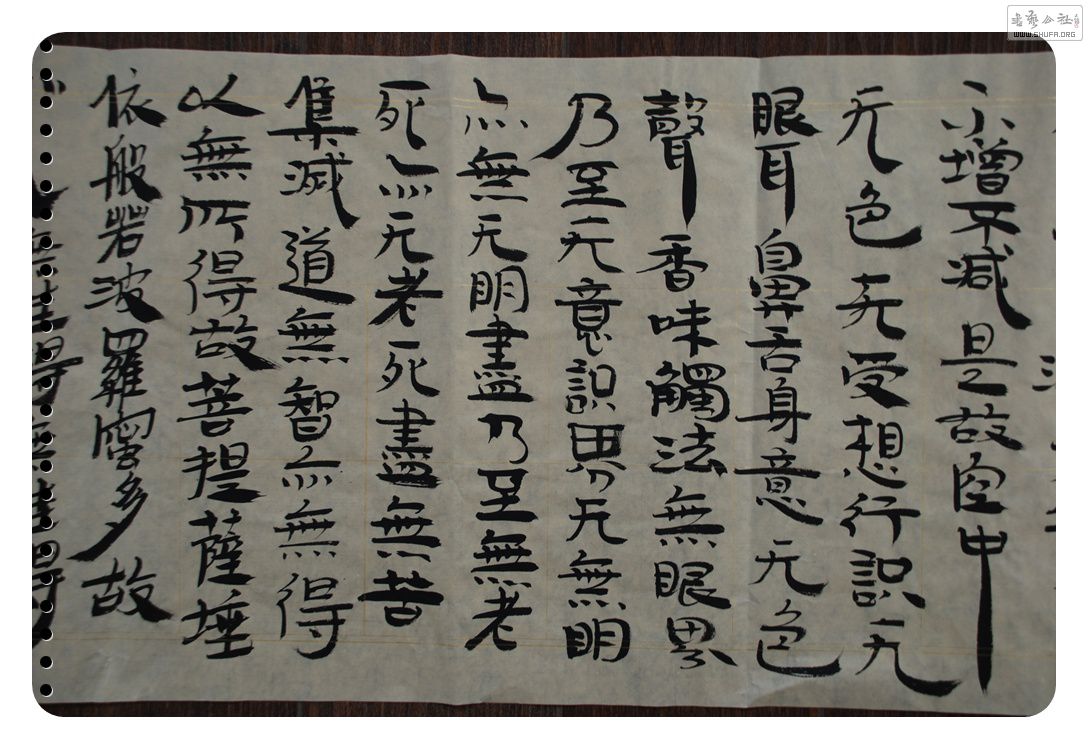 不增不減是故空中
无色无受想行识无
眼耳鼻舌身意无色
聲香味觸法無眼界
乃至无意识界无無明
亦無无明盡乃至無老
死亦无老死盡無苦
集滅道無智亦無得
以無所得故菩提薩埵
依般若波羅蜜多故
WWW.SHUFA.ORG